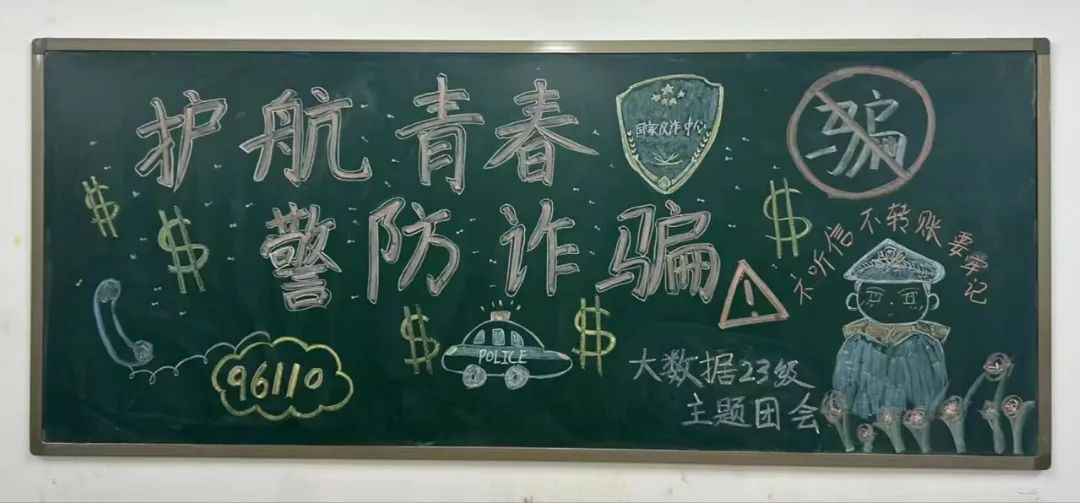 护航青春
国家反诈中心
骗
警防诈骗
不听信不转账要牢记
96110
POLICE
大数据23级
主题团会